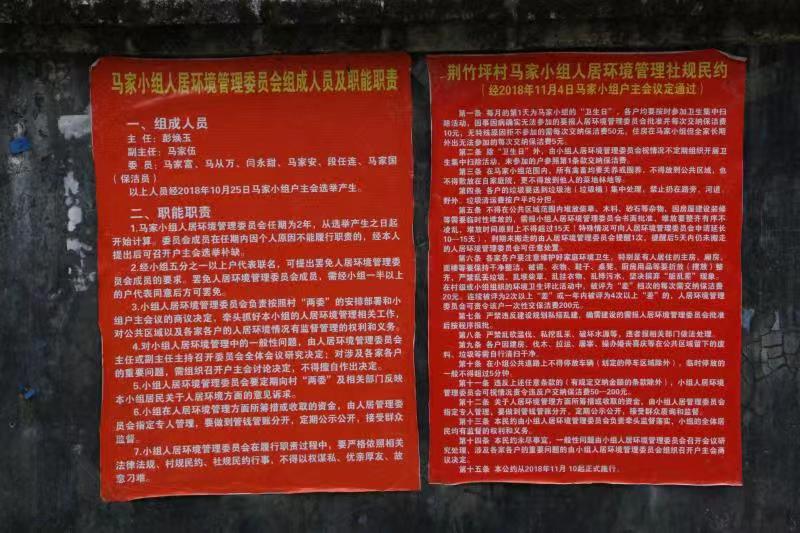 马家小组人居环境管理委员会组成人员及职能职责
一、组成人员
主 任：彭焕玉
副主任：马家伍
委 员：马家富、马从万、闫永甜、马家安、段任连、马家国
（保洁员）
以上人员经2018年10月25日马家小组户主会选举产生。
二、职能职责
1.马家小组人居环境管理委员会任期为2年，从选举产生之日起
开始计算。委员会成员在任期内因个人原因不能履行职责的，经本人
提出后可召开户主会选举补缺。
2.经小组五分之一以上户代表联名，可提出罢免人居环境管理委
员会成员的要求。罢免人居环境管理委员会成员，需经小组一半以上
的户代表同意后方可罢免。
3.小组人居环境管理委员会负责按照村“两委”的安排部署和小
组户主会议的商议决定，牵头抓好本小组的人居环境管理相关工作，
对公共区域以及各家各户的人居环境情况有监督管理的权利和义务。
4.对小组人居环境管理中的一般性问题，由人居环境管理委员会
主任或副主任主持召开委员会全体会议研究决定；对涉及各家各户
的重要问题，需组织召开户主会讨论决定，不得擅自作出决定。
5.小组人居环境管理委员会要定期向村“两委”及相关部门反映
本小组居民关于人居环境方面的意见诉求。
6.小组在人居环境管理方面所筹措或收取的资金，由人居管理委
员会指定专人管理，要做到管钱管账分开，定期公示公开，接受群众
监督。
7.小组人居环境管理委员会在履行职责过程中，要严格依照相关
法律法规、村规民约、社规民约行事，不得以权谋私、优亲厚友、故
意刁难。
荆竹坪村马家小组人居环境管理社规民约
（经2018年11月4日马家小组户主会议定通过）
第一条 每月的第1天为马家小组的“卫生日”，各户均要按时参加卫生集中扫
除活动，因事因病确实无法参加的要报人居环境管理委员会批准并每次交纳保洁费
10元，无特殊原因拒不参加的需每次交纳保洁费50元。住房在马家小组但全家长期
外出无法参加的每次交纳保洁费5元。
第二条 除“卫生日”外，由小组人居环境管理委员会视情况不定期组织开展卫
生集中扫除活动，未参加的户参照第1条款交纳保洁费。
第三条 在马家小组范围内，所有禽畜均要关养或围养，不得放到公共区域，也
不得散放在自家庭院，更不得放到他人的菜地林地等。
第四条 各户的垃圾要送到垃圾池（垃圾桶）集中处理，禁止扔在路旁、河道、
野外。垃圾清运费按户平均分担。
第五条 不得在公共区域范围内堆放柴草、木料、砂石等杂物，因房屋建设装修
等需要临时性堆放的，需报小组人居环境管理委员会书面批准，堆放要整齐有序不
凌乱，堆放时间原则上不得超过15天（特殊情况可向人居环境管理委员会申请延长
10—15天），到期未搬走的由人居环境管理委员会提醒1次，提醒后5天内仍未搬走
的人居环境管理委员会可任意处置。
第六条 各家各户要注意维护好家庭环境卫生，特别是有人居住的主房、厢房、
面楼等要保持干净整洁，被褥、衣物、鞋子、桌凳、厨房用品等要折放（摆放）整
齐，严禁乱丢垃圾、乱堆柴草、乱挂衣物、乱排污水，坚决摒弃“脏乱差”现象。
在村级或小组组织的环境卫生评比活动中，被评为“差”档次的每次需交纳保洁费
20元。连续被评为2次以上“差”或一年内被评为4次以上“差”的，人居环境管理
委员会可责令该户一次性交保洁费200元。
第七条 严禁违反建设规划私搭乱建，确需建设的需报人居环境管理委员会批准
后按程序报批。
第八条 严禁乱砍滥伐、私挖乱采、破坏水源等，违者报相关部门做法处理。
第九条 各户因建房、伐木、拉运、屠宰、操办婚丧喜庆等在公共区域留下的废
料、垃圾等需自行清扫干净。
第十条 在小组公共道路上不得停放车辆（划定的停车区域除外），临时停放的
一般不得超过5分钟。
第十一条 违反上述任意条款的（有规定交纳金额的条款除外），小组人居环境
管理委员会可视情况责令违反户交纳保洁费50—200元。
第十二条 关于人居环境管理方面所筹措或收取的资金，由小组人居环境委员会
指定专人管理，要做到管钱管账分开，定期公示公开，接受群众质询和监督。
第十三条 本民约由小组人居环境管理委员会负责牵头监督落实，小组的全体居
民均有监督的权利和义务。
第十四条 本民约未尽事宜，一般性问题由小组人居环境管理委员会召开会议研
究处理，涉及各家各户的重要问题由小组人居环境管理委员会组织召开户主会商
议决定。
第十五条 本公约从2018年11月10起正式施行。